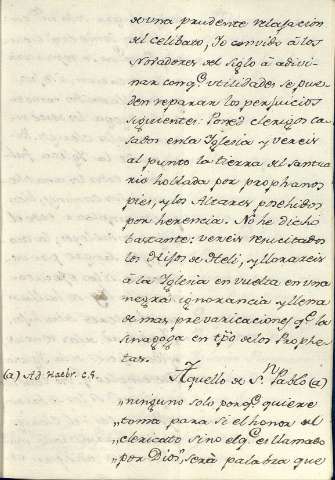 de una prudente relaxacion
del celibato, Yo convido à los
Noradores del siglo à adivi-
nar con q.e utilidades se pue-
den reparar los perjuicios
siguientes: Poned clerigos ca-
sados en la Iglesia y vereis
al punto la tierra del santua
rio hollada por prophanos
pies, y los Altares posehidos
por herencia. No he dicho
bastante: vereis resucitados
los Hijos de Heli, y llorareis
à la Iglesia en vuelta en una
negra ignorancia y llena
de mas prevaricaciones q.e la
sinagoga en tpõ de los Prophe
tas.
Aquello de S.n Pablo (a)
(a) Ad Haebr. c. 5.
„ninguno solo porq.e quiere
„toma para si el honor del
„clericato sino el q.e es llamado
„por Dios", serà palabra que